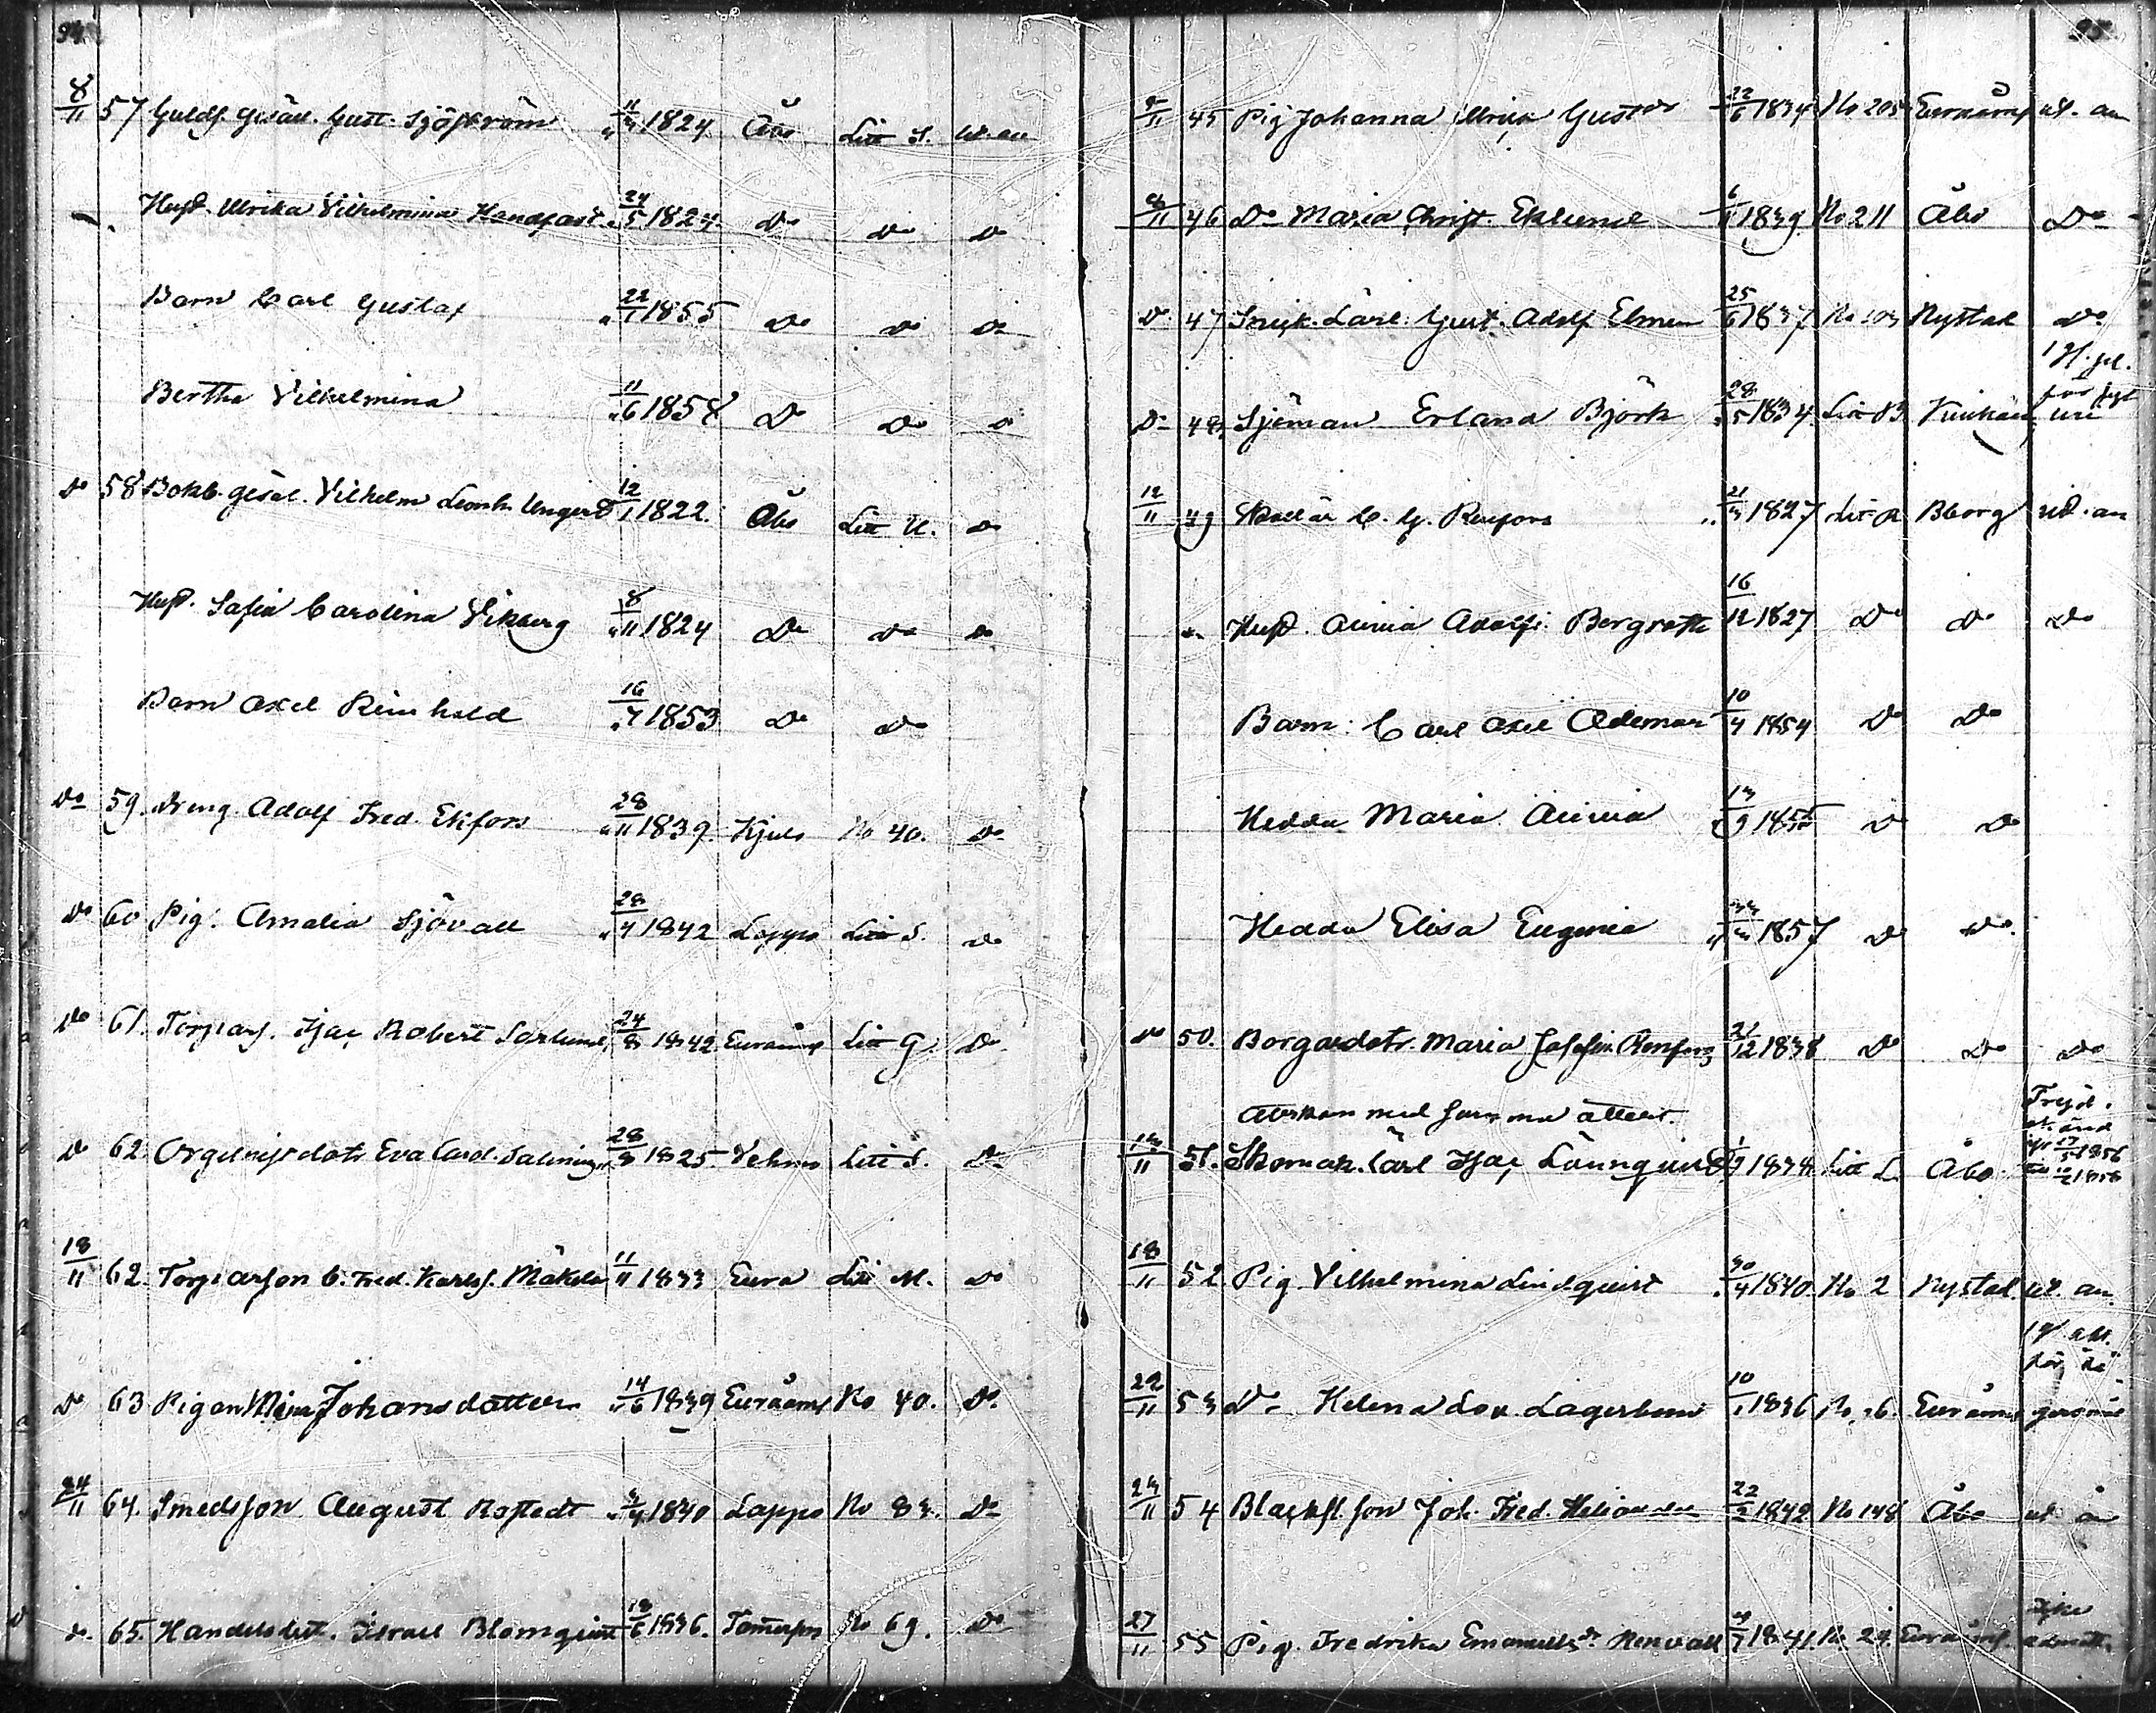 94
8/11 57 Guldf. gesäll. Gust. Sjöström 11/3 1824 Åbo Litt S. ut. an
Hust. Ulrika Vilhelmina Handfast 24/5 1824 Do Do Do
Barn Carl Gustaf 22/1 1855 Do Do Do
Bertha Vilhelmina 11/6 1858 Do Do Do
Do 58 Bokb. gesäl. Vilhelm Leonh. Ungert 12/1 1822. Åbo Litt U. Do
Hust. Sofia Carolina Vikberg 8/11 1824 Do Do Do
Barn Axel Reinhold 16/7 1853 Do Do
Do 59. Dreng. Adolf Fred. Ekfors 28/11 1839. Kjulo No 40. Do
Do 60 Pig. Amalia Sjövall 28/4 1842 Lappo Litt S. Do
Do 61. Torpars. Isac Robert Sorlund 24/8 1842 Euraåm Litt G. Do
Do 62. Orgelnistdotr Eva Carol. Salminger 28/8 1825. Vehmo Litt S. Do
18/11 62. Torparson C. Fred. Karlss. Mäkelä 11/11 1833 Eura Litt M. Do
Do 63 Pigan Mina Johansdotter 14/6 1839 Euraåm No 40. Do
24/11 64. Smedsson August Rostedt 1840 Lappo No 83. Do
Do 65. Handelsbet. Israel Blomquist 18/6 1836. Tammerfors No 69. Do
95
11 45 Pig Johanna Ulrika Gustdr 22/6 1834 No 205 Euraåm ut. an
11 46 Do Maria Christ. Eklund 6/11 1839 No 211 Åbo Do
Do 47 Snick. Lärl. Gust. Adolf Elmen 25/6 1837 No 103 Nystad Do
Do 48 Sjöman Erland Björk 28/5 1834 Litt B Kumhau
12/11 49 C. G. Renfors 21/3 1827 Litt R Bborg ut. an
Hust. Anna Adolf. Bergroth 16/12 1827 Do Do Do
Barn: Carl Axel Ademar 10/4 1854 Do Do
Hedda Maria Anna 13/9 1855 Do Do
Hedda Elisa Eugenia 1857 Do Do.
Do 50. Borgaredotr. Maria Josefin Renfors 21/12 1838 Do Do Do
Frejd.
13/11 51. Skomak. Lärl Isac Lönnquist 1/9 1838 Litt L Åbo
18/11 52 Pig. Vilhelmina Lindquist 30/4 1840 No 2 Nystad. ut. an.
22/11 53 Do Helena Lov. Lagerbom 10/1 1836 No 26. Euraåm
23/11 54 Blackfl. son Joh. Fred. Heliander 22/2 1842 No 148 Åbo ut an
27/11 55 Pig. Fredrika Emanuelsdr. Renvall 1841 No 24. Euraåm. Icke admitt.